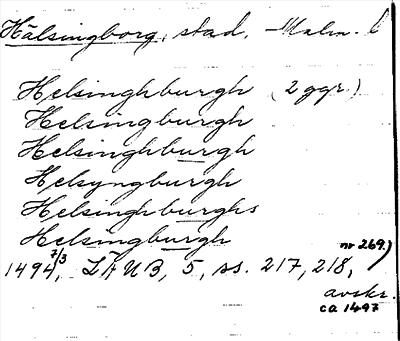 Hälsingborg, stad, Malm. l
Helsinghburgh (2 ggr.)
Helsingburgh
Helsinghburgh
Helsyngburgh
Helsinghburghs
Helsingburgh
1494 7/3, LÄUB, 5, ss. 217, 218, nr 269)
avskr.
ca 1497